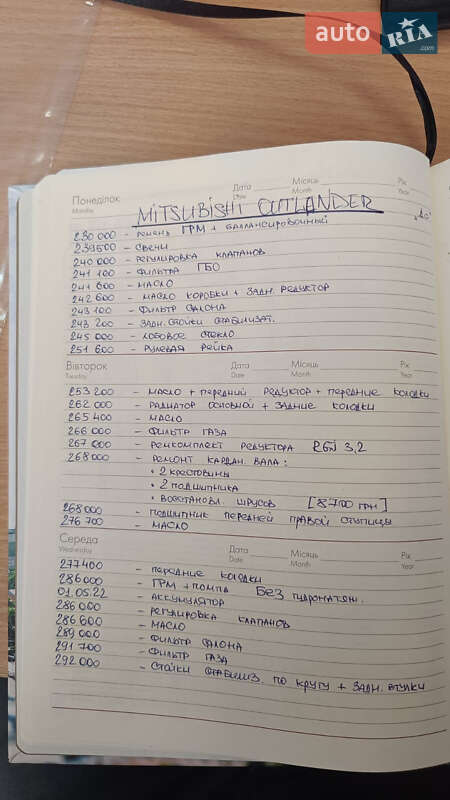 auto RIA .com
Понеділок Monday Дата Date Місяць Month Рік Year
MITSUBISHI OUTLANDER
230 000 - ремень ГРМ + баллансировочный
239500 - свечи
240 000 - регулировка клапанов
241 100 - фильтра ГБО
241 600 - масло
242 600 - масло коробки + задн. редуктор
243 100 - фильтр салона
243 200 - задн. стойки стабилизат.
245 000 - лобовое стекло
251 600 - рулевая рейка
Вівторок Tuesday Дата Date Місяць Month Рік Year
253 200 - масло + передний редуктор + передние колодки
262 000 - радиатор основной + задние колодки
265 400 - масло
266 000 - фильтр газа
267 000 - ремкомплект редуктора
268 000 - ремонт кардан. вала:
• 2 крестовины
• 2 подшипника
• восстановл. шрусов [8700 грн]
268 000 - подшипник передней правой ступицы
276 700 - масло
Середа Wednesday Дата Date Місяць Month Рік Year
277400 - передние колодки
286 000 - ГРМ + помпа без гидронатяж.
01.05.22 - аккумулятор
286 000 - регулировка клапанов
286 600 - масло
289 000 - фильтр салона
291 700 - фильтр газа
292 000 - стойки стабилиз. по кругу + задн. втулки